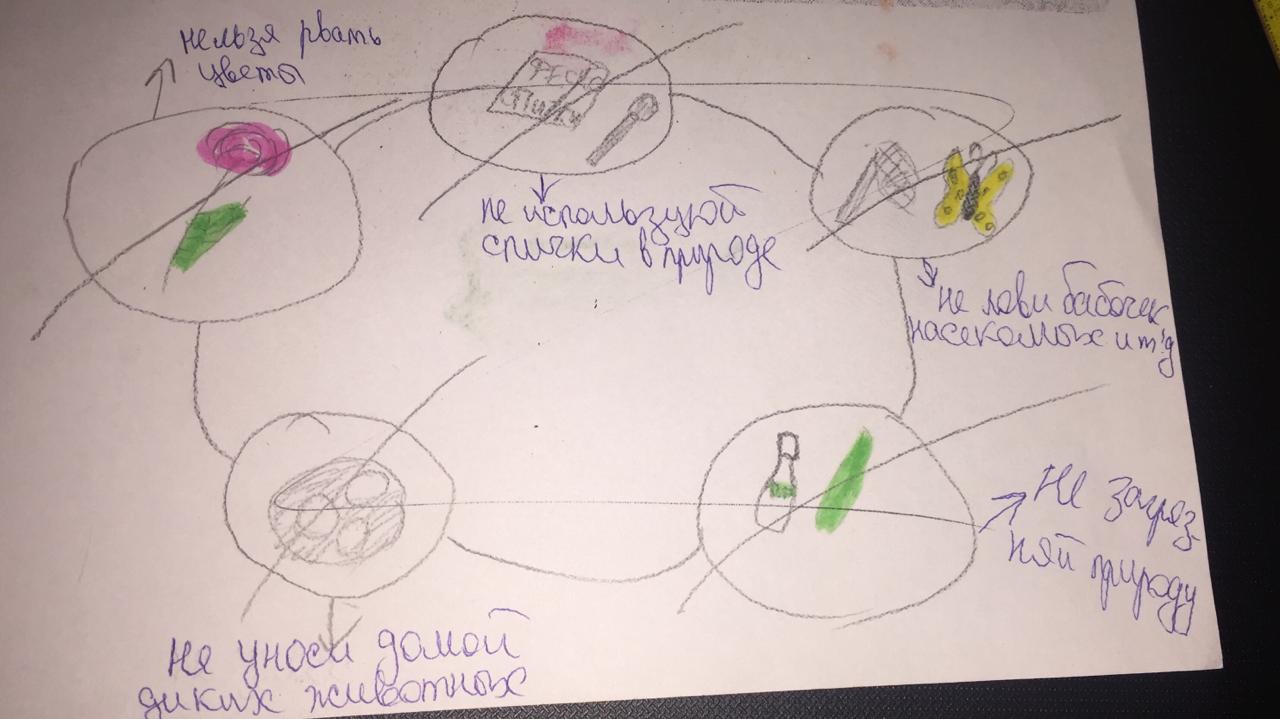 нельзя рвать
цветы
спички
не используй
спички в природе
не лови бабочек
насекомых и т.д
Не загряз-
няй природу
Не уноси домой
диких животных